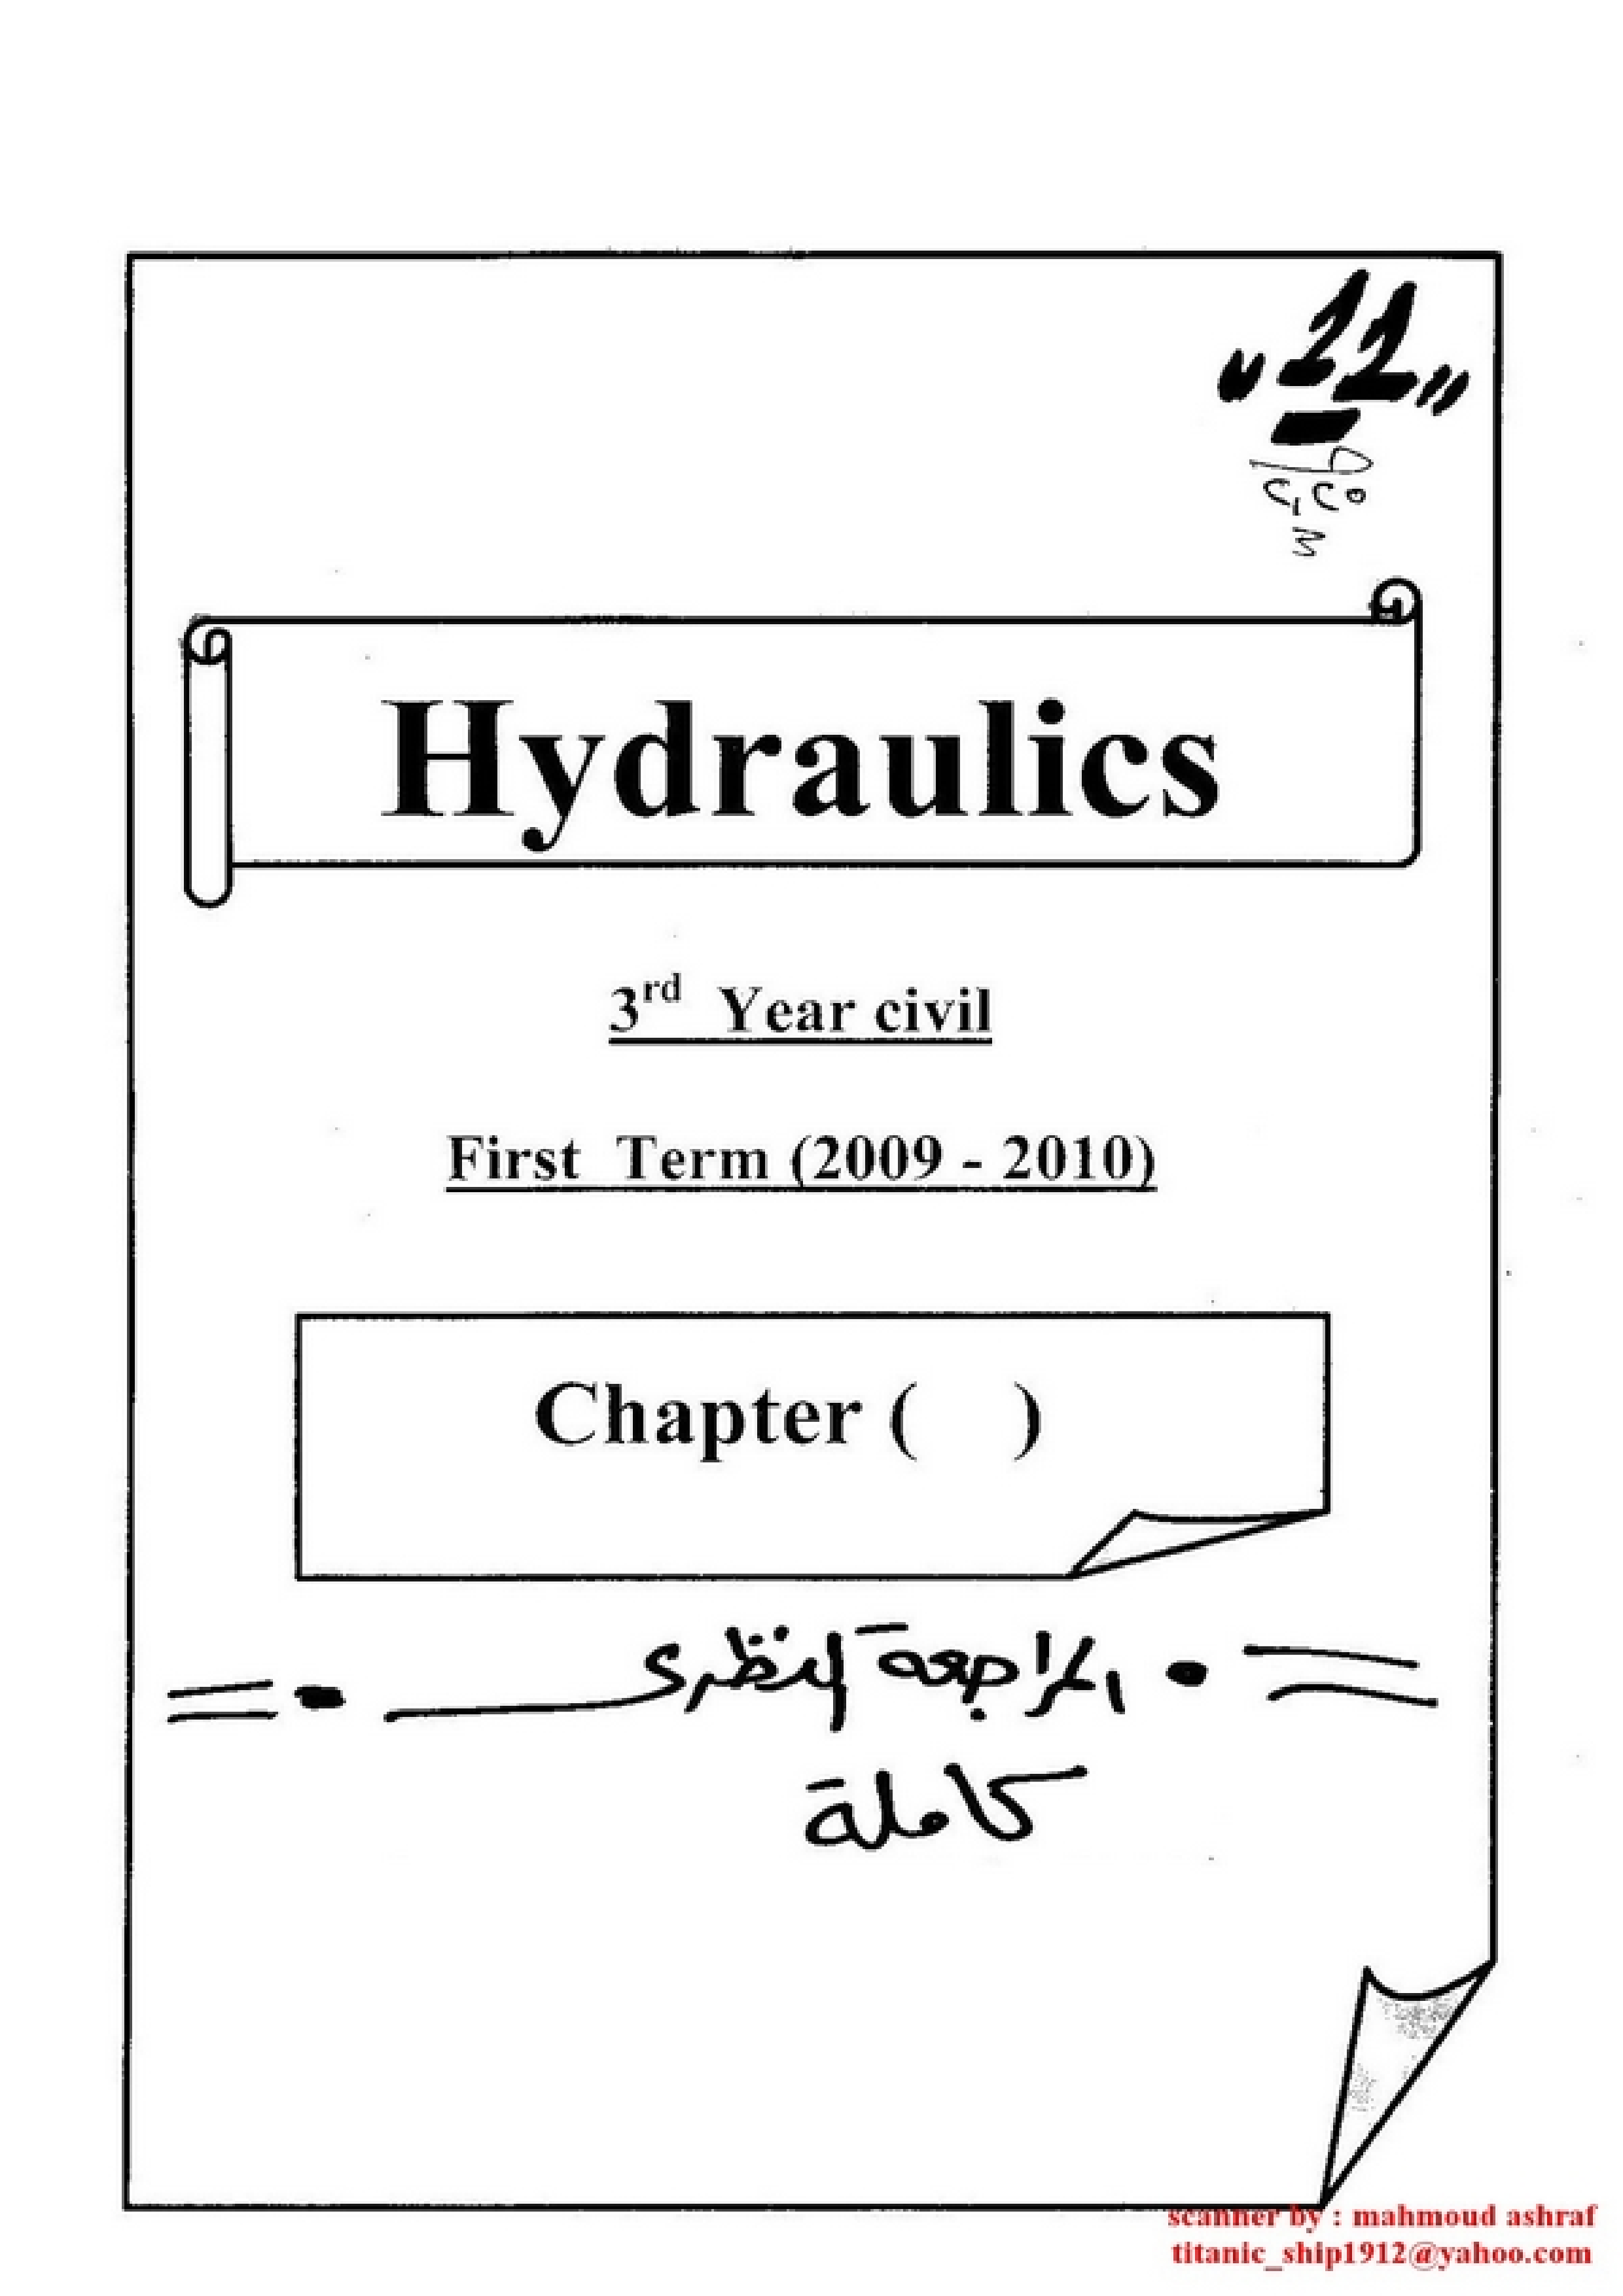 "11"
Hydraulics
3rd Year civil
First Term (2009 - 2010)
Chapter ( )
المراجعة النظرى
كاملة
scanner by : mahmoud ashraf
titanic_ship1912@yahoo.com